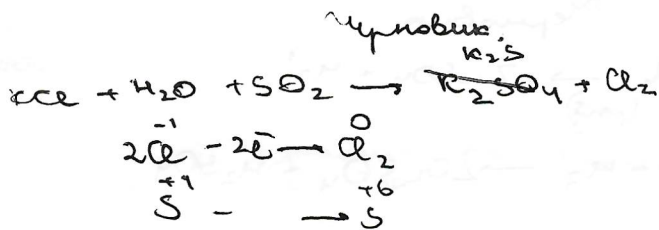 Черновик.
K₂S
KCl + H₂O + SO₂ → K₂SO₄ + Cl₂
-1 0
2Cl - 2ē → Cl₂
+4 +6
S - → S